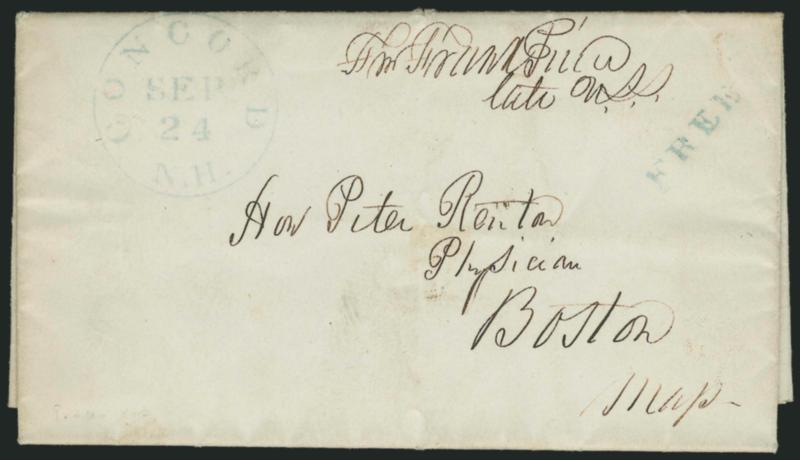 CONCORD
SEP
24
N.H.
Frank Pierce
late U.S.S.
FREE
Hon Peter Renton
Physician
Boston
Mass